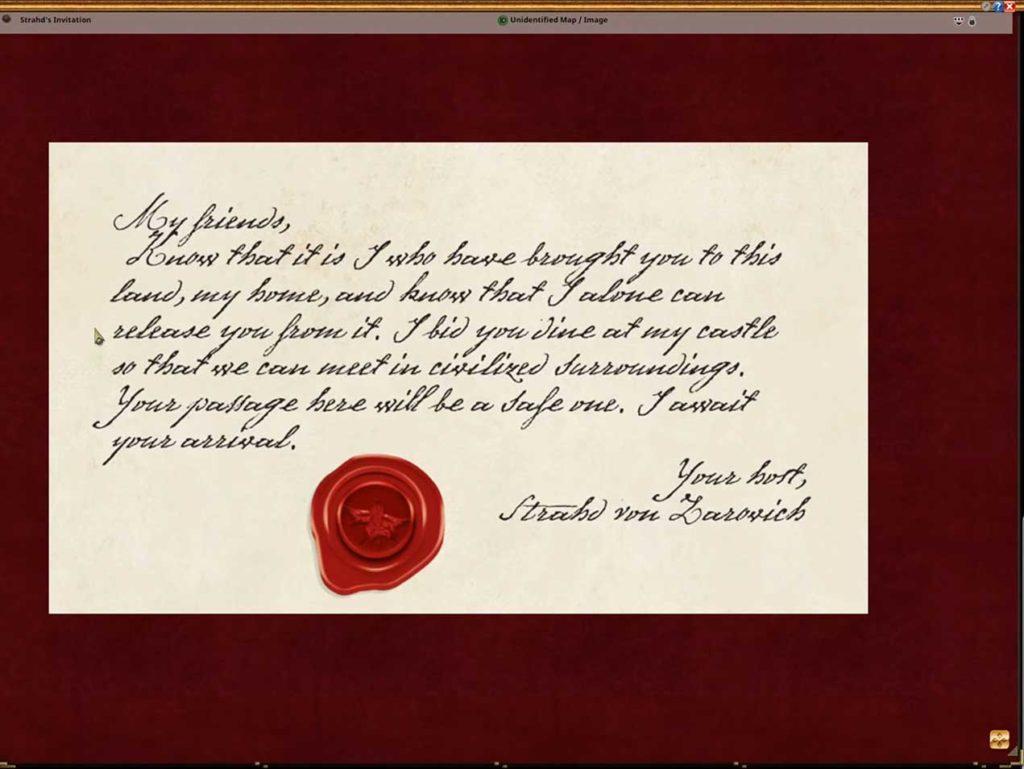 Strahd's Invitation
Unidentified Map / Image
My friends,
Know that it is I who have brought you to this
land, my home, and know that I alone can
release you from it. I bid you dine at my castle
so that we can meet in civilized surroundings.
Your passage here will be a safe one. I await
your arrival.
Your host,
Strahd von Zarovich